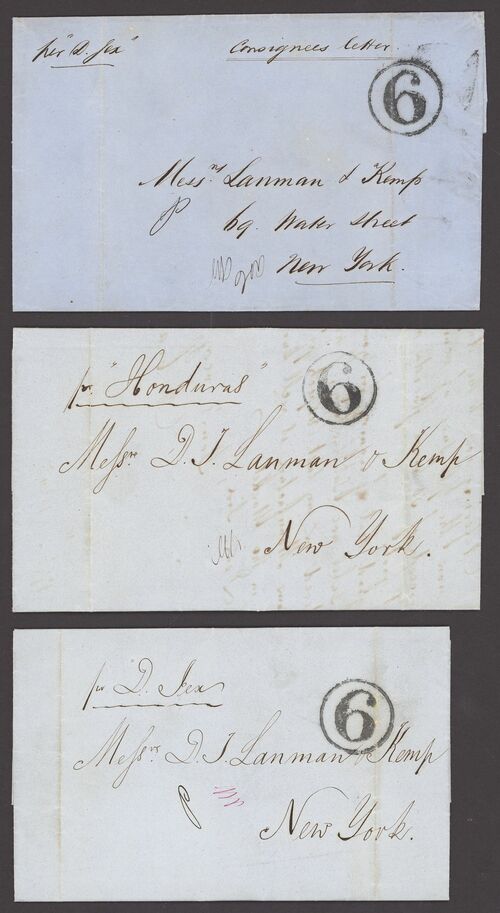 per "D. Jex"
Consignees letter
6
Messrs Lanman & Kemp
69. Water Street
New York.
pr "Honduras"
6
Messrs. D. T. Lanman & Kemp
New York.
pr D. Jex
6
Messrs D. T. Lanman & Kemp
New York.